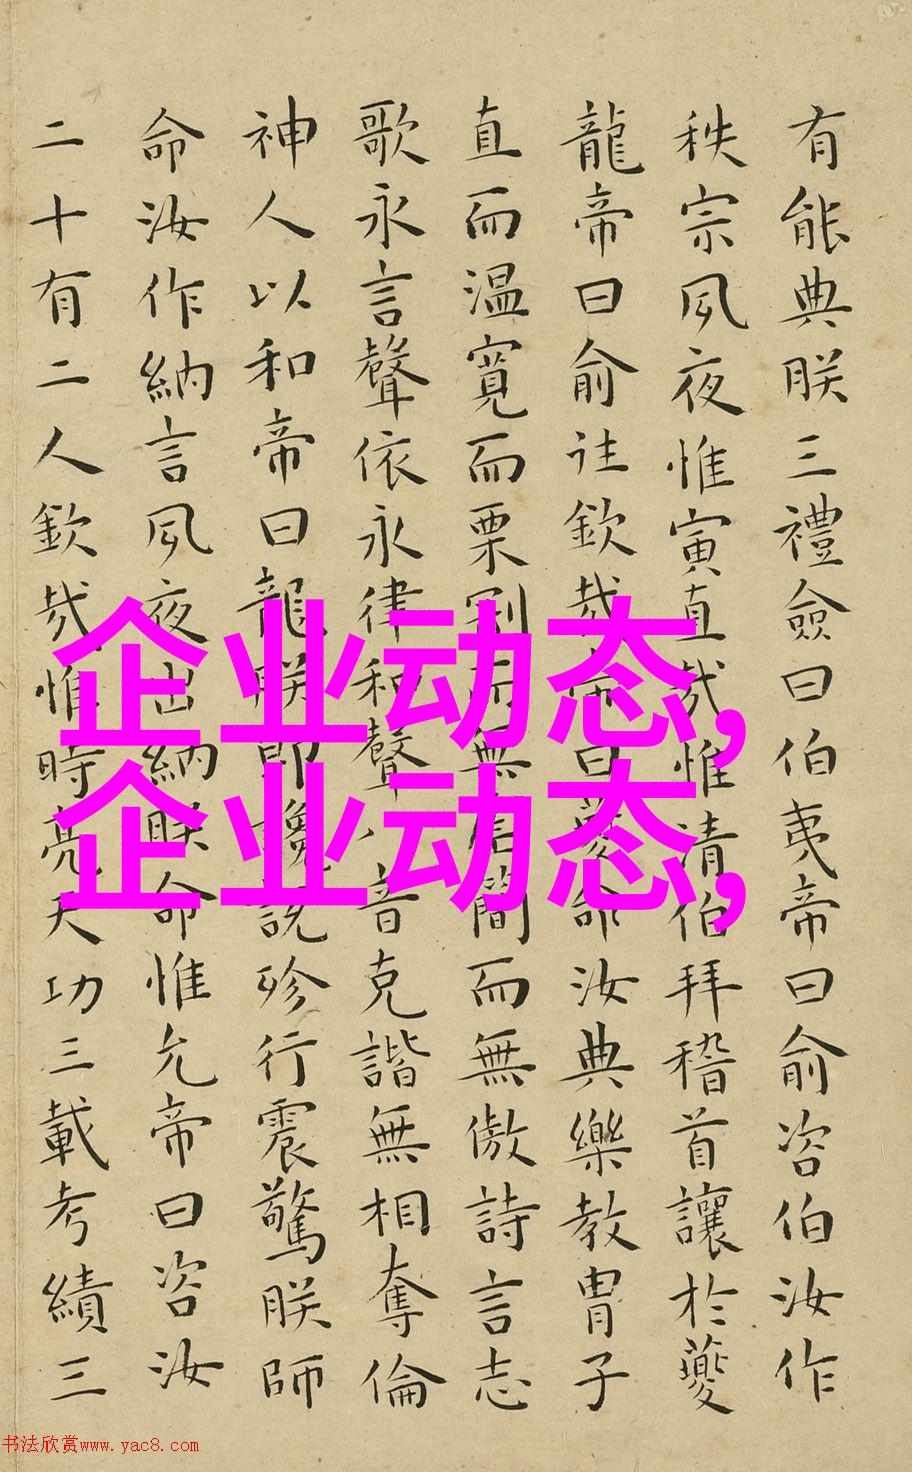 有能典朕三禮僉曰伯夷帝曰俞咨伯汝作
秩宗夙夜惟寅直哉惟清伯拜稽首讓於夔
龍帝曰俞往欽哉帝曰夔命汝典樂教胄子
直而温寬而栗剛而無虐簡而無傲詩言志
歌永言聲依永律和聲八音克諧無相奪倫
神人以和帝曰龍朕讒說殄行震驚朕師
命汝作納言夙夜出納朕命惟允帝曰咨汝
二十有二人欽哉惟時亮天功三載考績三
企业动态,
企业动态,
书法欣赏www.yac8.com